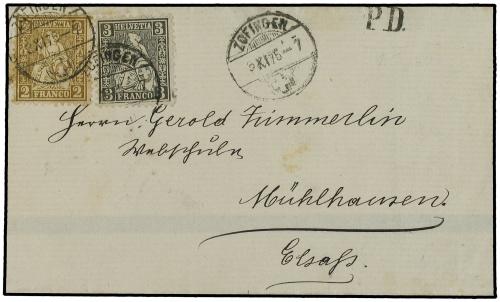 ZOFINGEN
HELVETIA
P.D.
ZOFINGEN
XI 75
7
2 FRANCO 2
3 FRANCO 3
3 3
Herrn Gerold Zimmerlin
Webschule
Mühlhausen.
Elsaß.